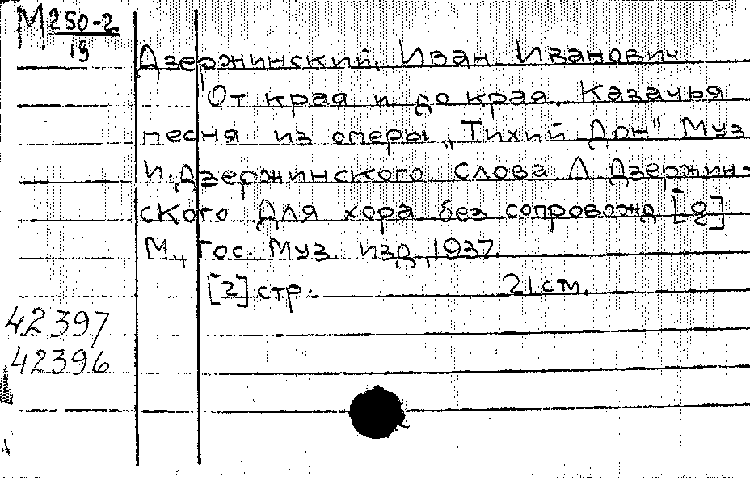 М 250-2
19
Дзержинский, Иван Иванович
От края и до края. Казачья
песня из оперы „Тихий Дон" Муз
И. Дзержинского Слова Л Дзержин-
ского Для хора без сопровожд [8]
М., Гос. Муз. изд, 1937.
[2] стр. 21 см.
42397
42396